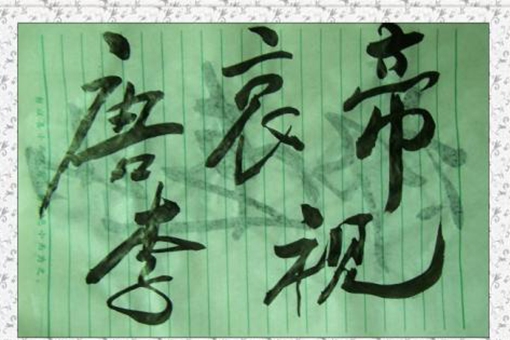 唐哀帝
李视